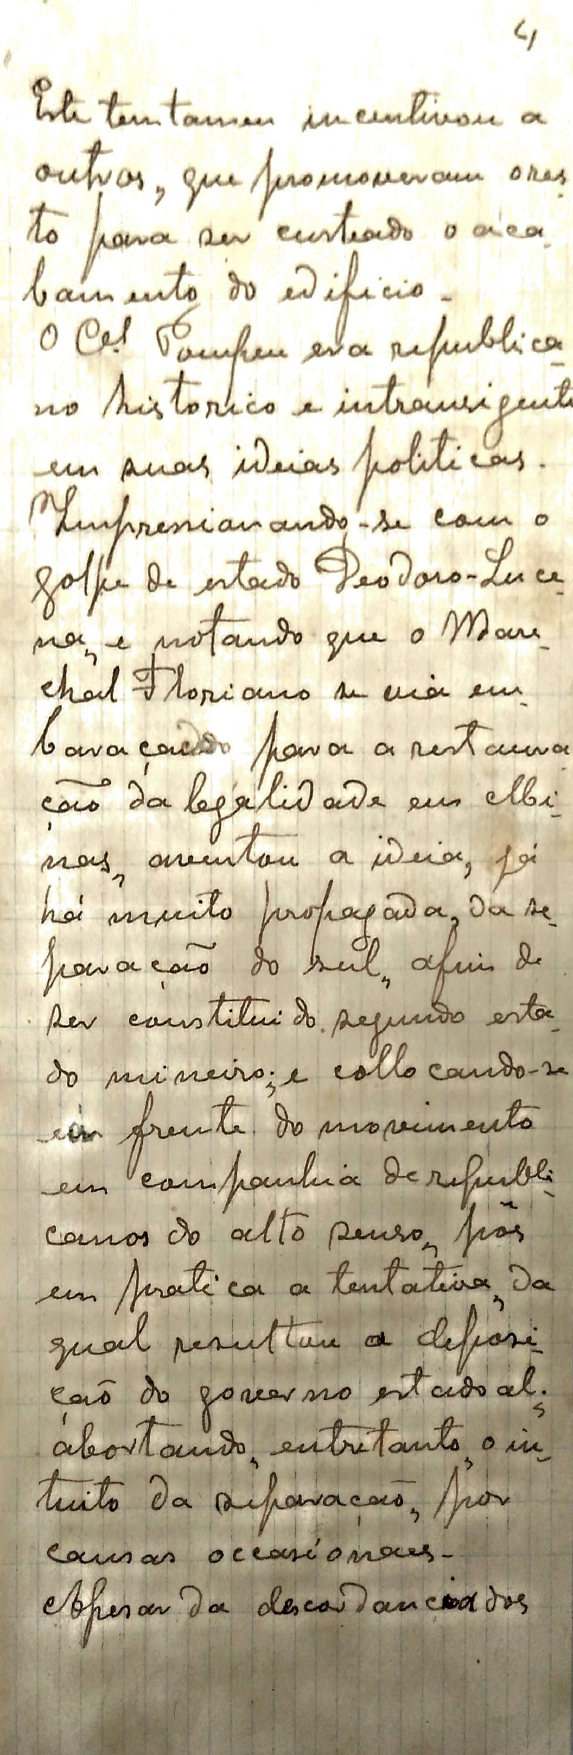 4
Este tentamen incentivou a
outros, que promoveram o res-
to para ser custeado o aca-
bamento do edificio.
O Cel. Pompeu era republica-
no historico e intransigente
em suas ideias politicas.
Impressionando-se com o
golpe de estado Deodoro-Luce-
na, e notando que o Mare-
chal Floriano se via em-
baraçado para a restaura-
ção da legalidade em Mi-
nas, aventou a ideia, já
há muito propagada, da se-
paração do sul, afim de
ser constituido segundo esta-
do mineiro; e collocando-se
em frente do movimento
em companhia de republi-
canos do alto senso, pôs
em pratica a tentativa, da
qual resultou a deposi-
ção do governo estadoal;
abortando, entretanto, o in-
tuito da separação, por
causas occasionaes.
Apesar da descordancia dos